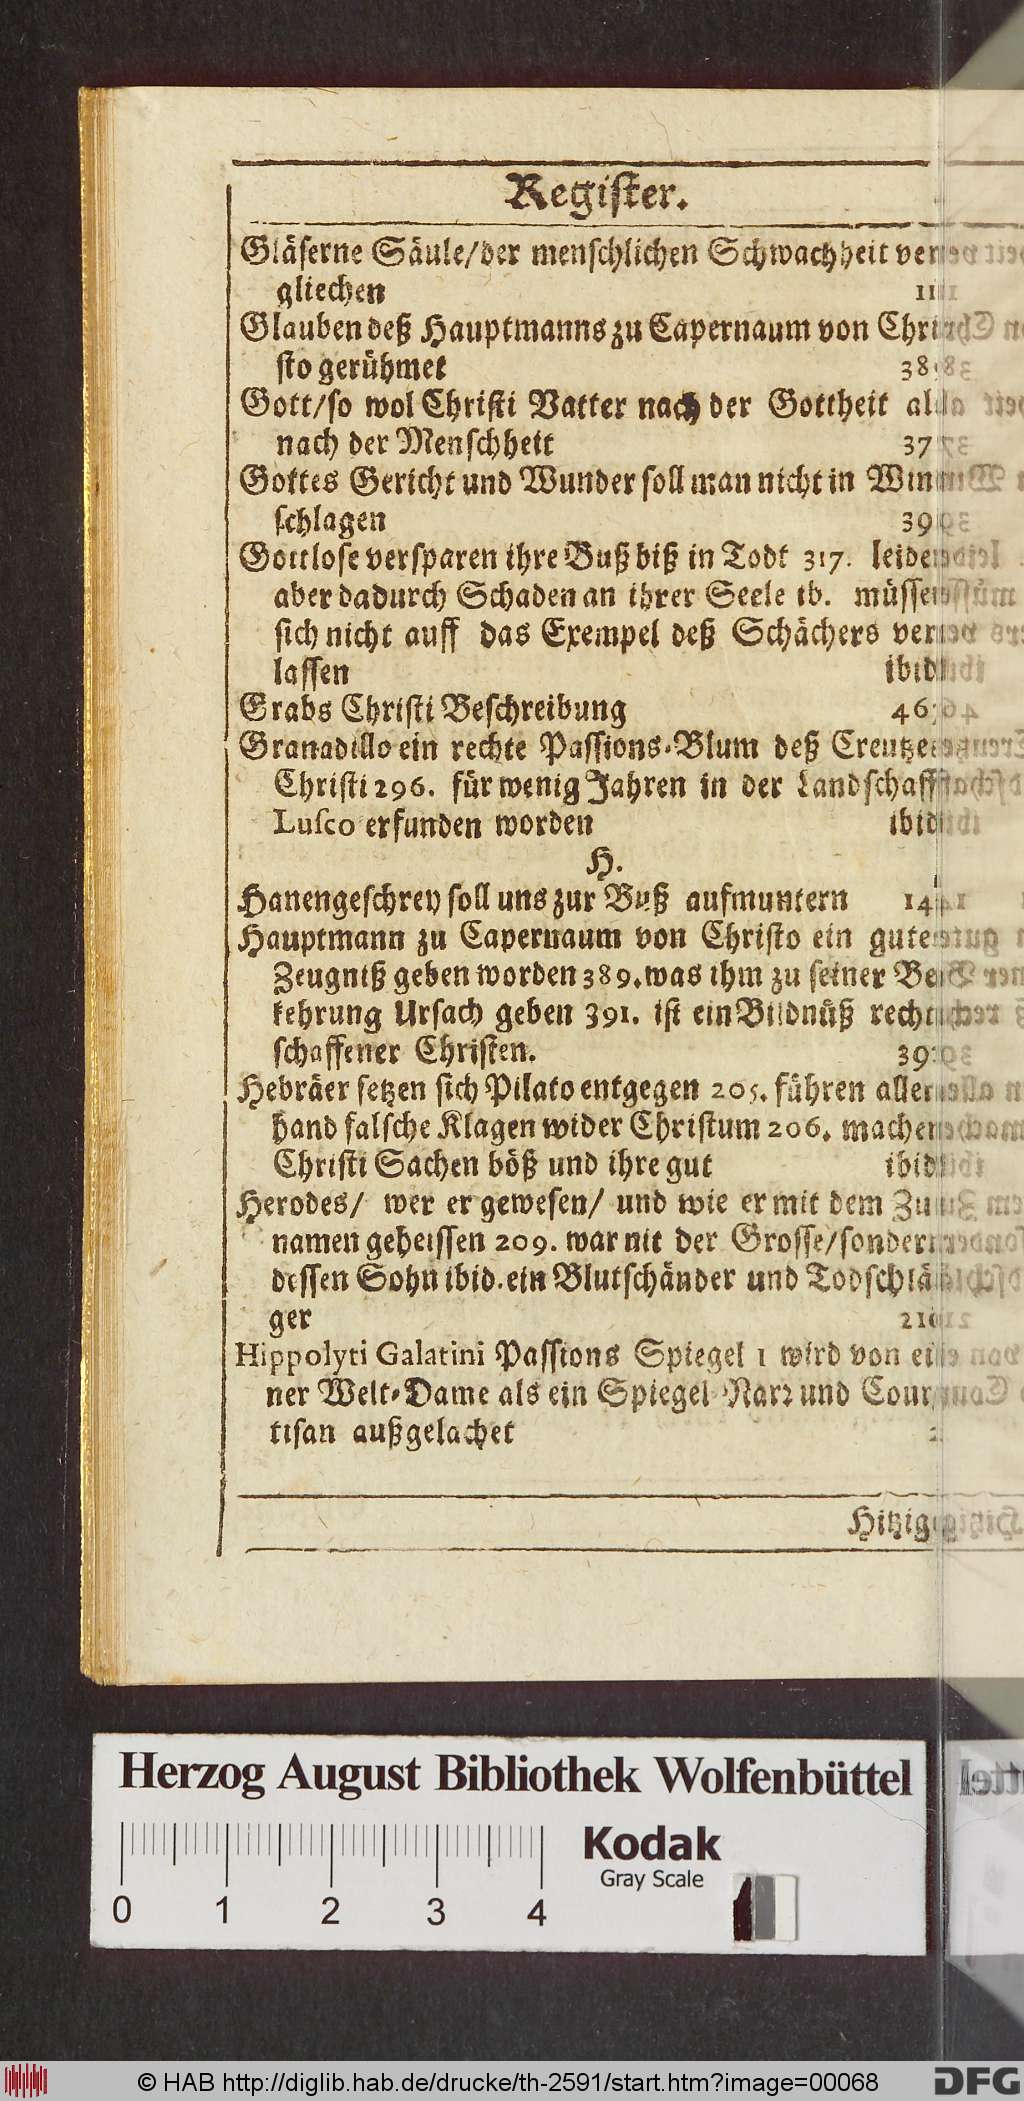 Register.
Gläserne Säule/der menschlichen Schwachheit ver⸗
gliechen 111
Glauben deß Hauptmanns zu Capernaum von Chri⸗
sto gerühmet 38
Gott/so wol Christi Vatter nach der Gottheit als
nach der Menschheit 37
Gottes Gericht und Wunder soll man nicht in Wind
schlagen 39
Gottlose versparen ihre Buß biß in Todt 317. leiden
aber dadurch Schaden an ihrer Seele ib. müssen
sich nicht auff das Exempel deß Schächers ver⸗
lassen ibid
Grabs Christi Beschreibung 46
Granadillo ein rechte Passions⸗Blum deß Creutzes
Christi 296. für wenig Jahren in der Landschafft
Lusco erfunden worden ibid
H.
Hanengeschrey soll uns zur Buß aufmuntern 14
Hauptmann zu Capernaum von Christo ein gutes
Zeugniß geben worden 389. was ihm zu seiner Be⸗
kehrung Ursach geben 391. ist ein Bildnüß recht⸗
schaffener Christen. 39
Hebräer setzen sich Pilato entgegen 205. führen aller⸗
hand falsche Klagen wider Christum 206. machen
Christi Sachen böß und ihre gut ibid
Herodes/ wer er gewesen/ und wie er mit dem Zu⸗
namen geheissen 209. war nit der Grosse/sondern
dessen Sohn ibid. ein Blutschänder und Todschlä⸗
ger 210
Hippolyti Galatini Passions Spiegel 1 wird von ei⸗
ner Welt⸗Dame als ein Spiegel⸗Narr und Cour⸗
tisan außgelachet 2
Hitzig
Herzog August Bibliothek Wolfenbüttel
Kodak
Gray Scale
0 1 2 3 4
© HAB http://diglib.hab.de/drucke/th-2591/start.htm?image=00068
DFG